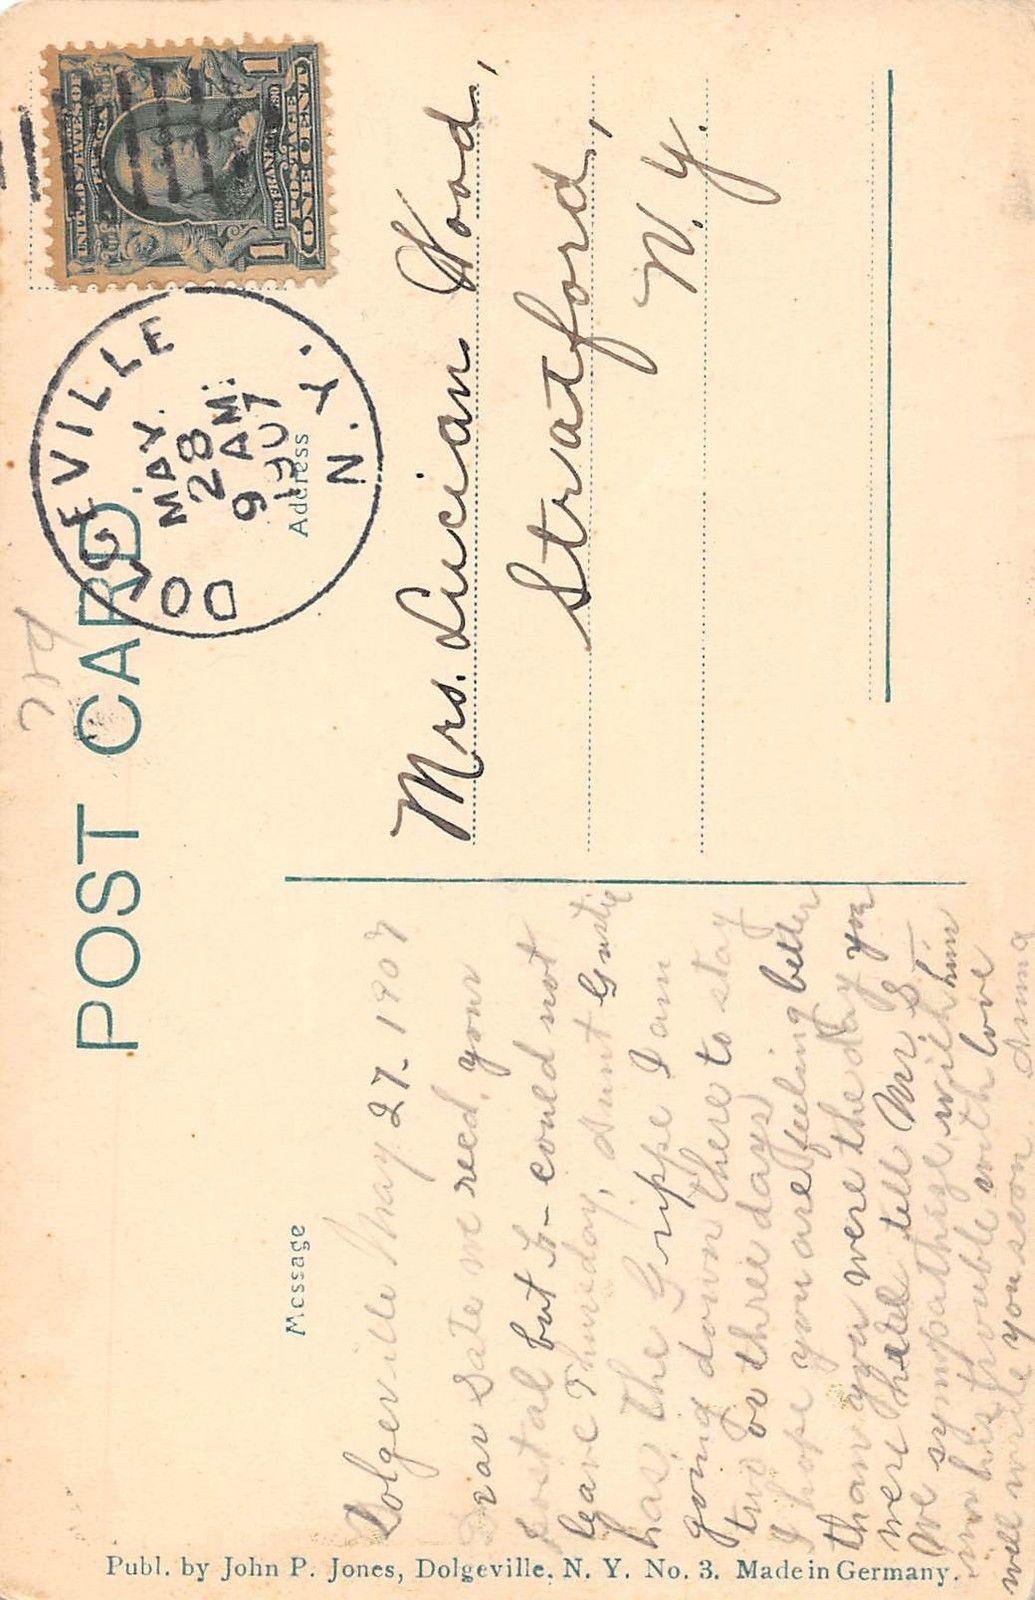 POST CARD.
Message
Address
Dolgeville May 27-1907
Dear Sate we recd, your
postal but I- could not
leave Thursday, Aunt Gustie
has the Grippe I am
going down there to stay
two or three days
I hope you are feeling better
than you were the day you
were here tell Mr. S
We sympathize with him
in his trouble with love
will write you soon Anna
Mrs. Lucian Wood,
Stratford,
N. Y.
UNITED STATES OF AMERICA
1706 FRANKLIN 1790
POSTAGE
ONE CENT
1 1
GEVILLE
MAY.
28
9 AM.
1907
N. Y.
Publ. by John P. Jones, Dolgeville, N. Y. No. 3. Made in Germany.